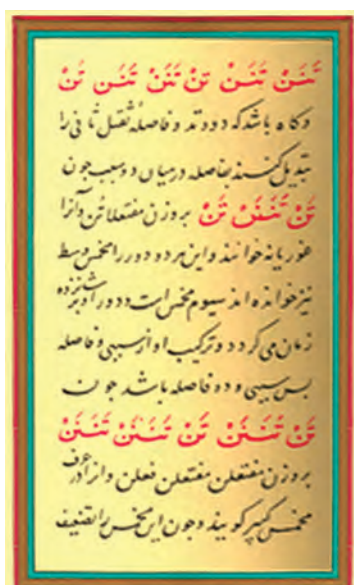 تَنَنْ تَنَنْ تَنْ تَنَنْ تَنَنْ تَنْ
و کاه باشد که دو وتد و فاصله ثقیل ثانی را
تبدیل کنند بفاصله در میان دو سبب جون
تَنْ تَنَنَنْ تَنْ بر وزن مفتعلاتن و آنرا
خوانند و این هر دو دور را مخمس وسط
نیز خوانده اند سیوم مخمس است و دور او شانزده
زمان می کردد و ترکیب او از سببی و فاصله
بس سببی و دو فاصله باشد جون
تَنْ تَنَنَنْ تَنْ تَنَنَنْ تَنَنَنْ
بر وزن مفتعلن مفتعلن فعلن و انرا در عرف
مخمس کبیر کویند و جون این مخمس را تضعیف